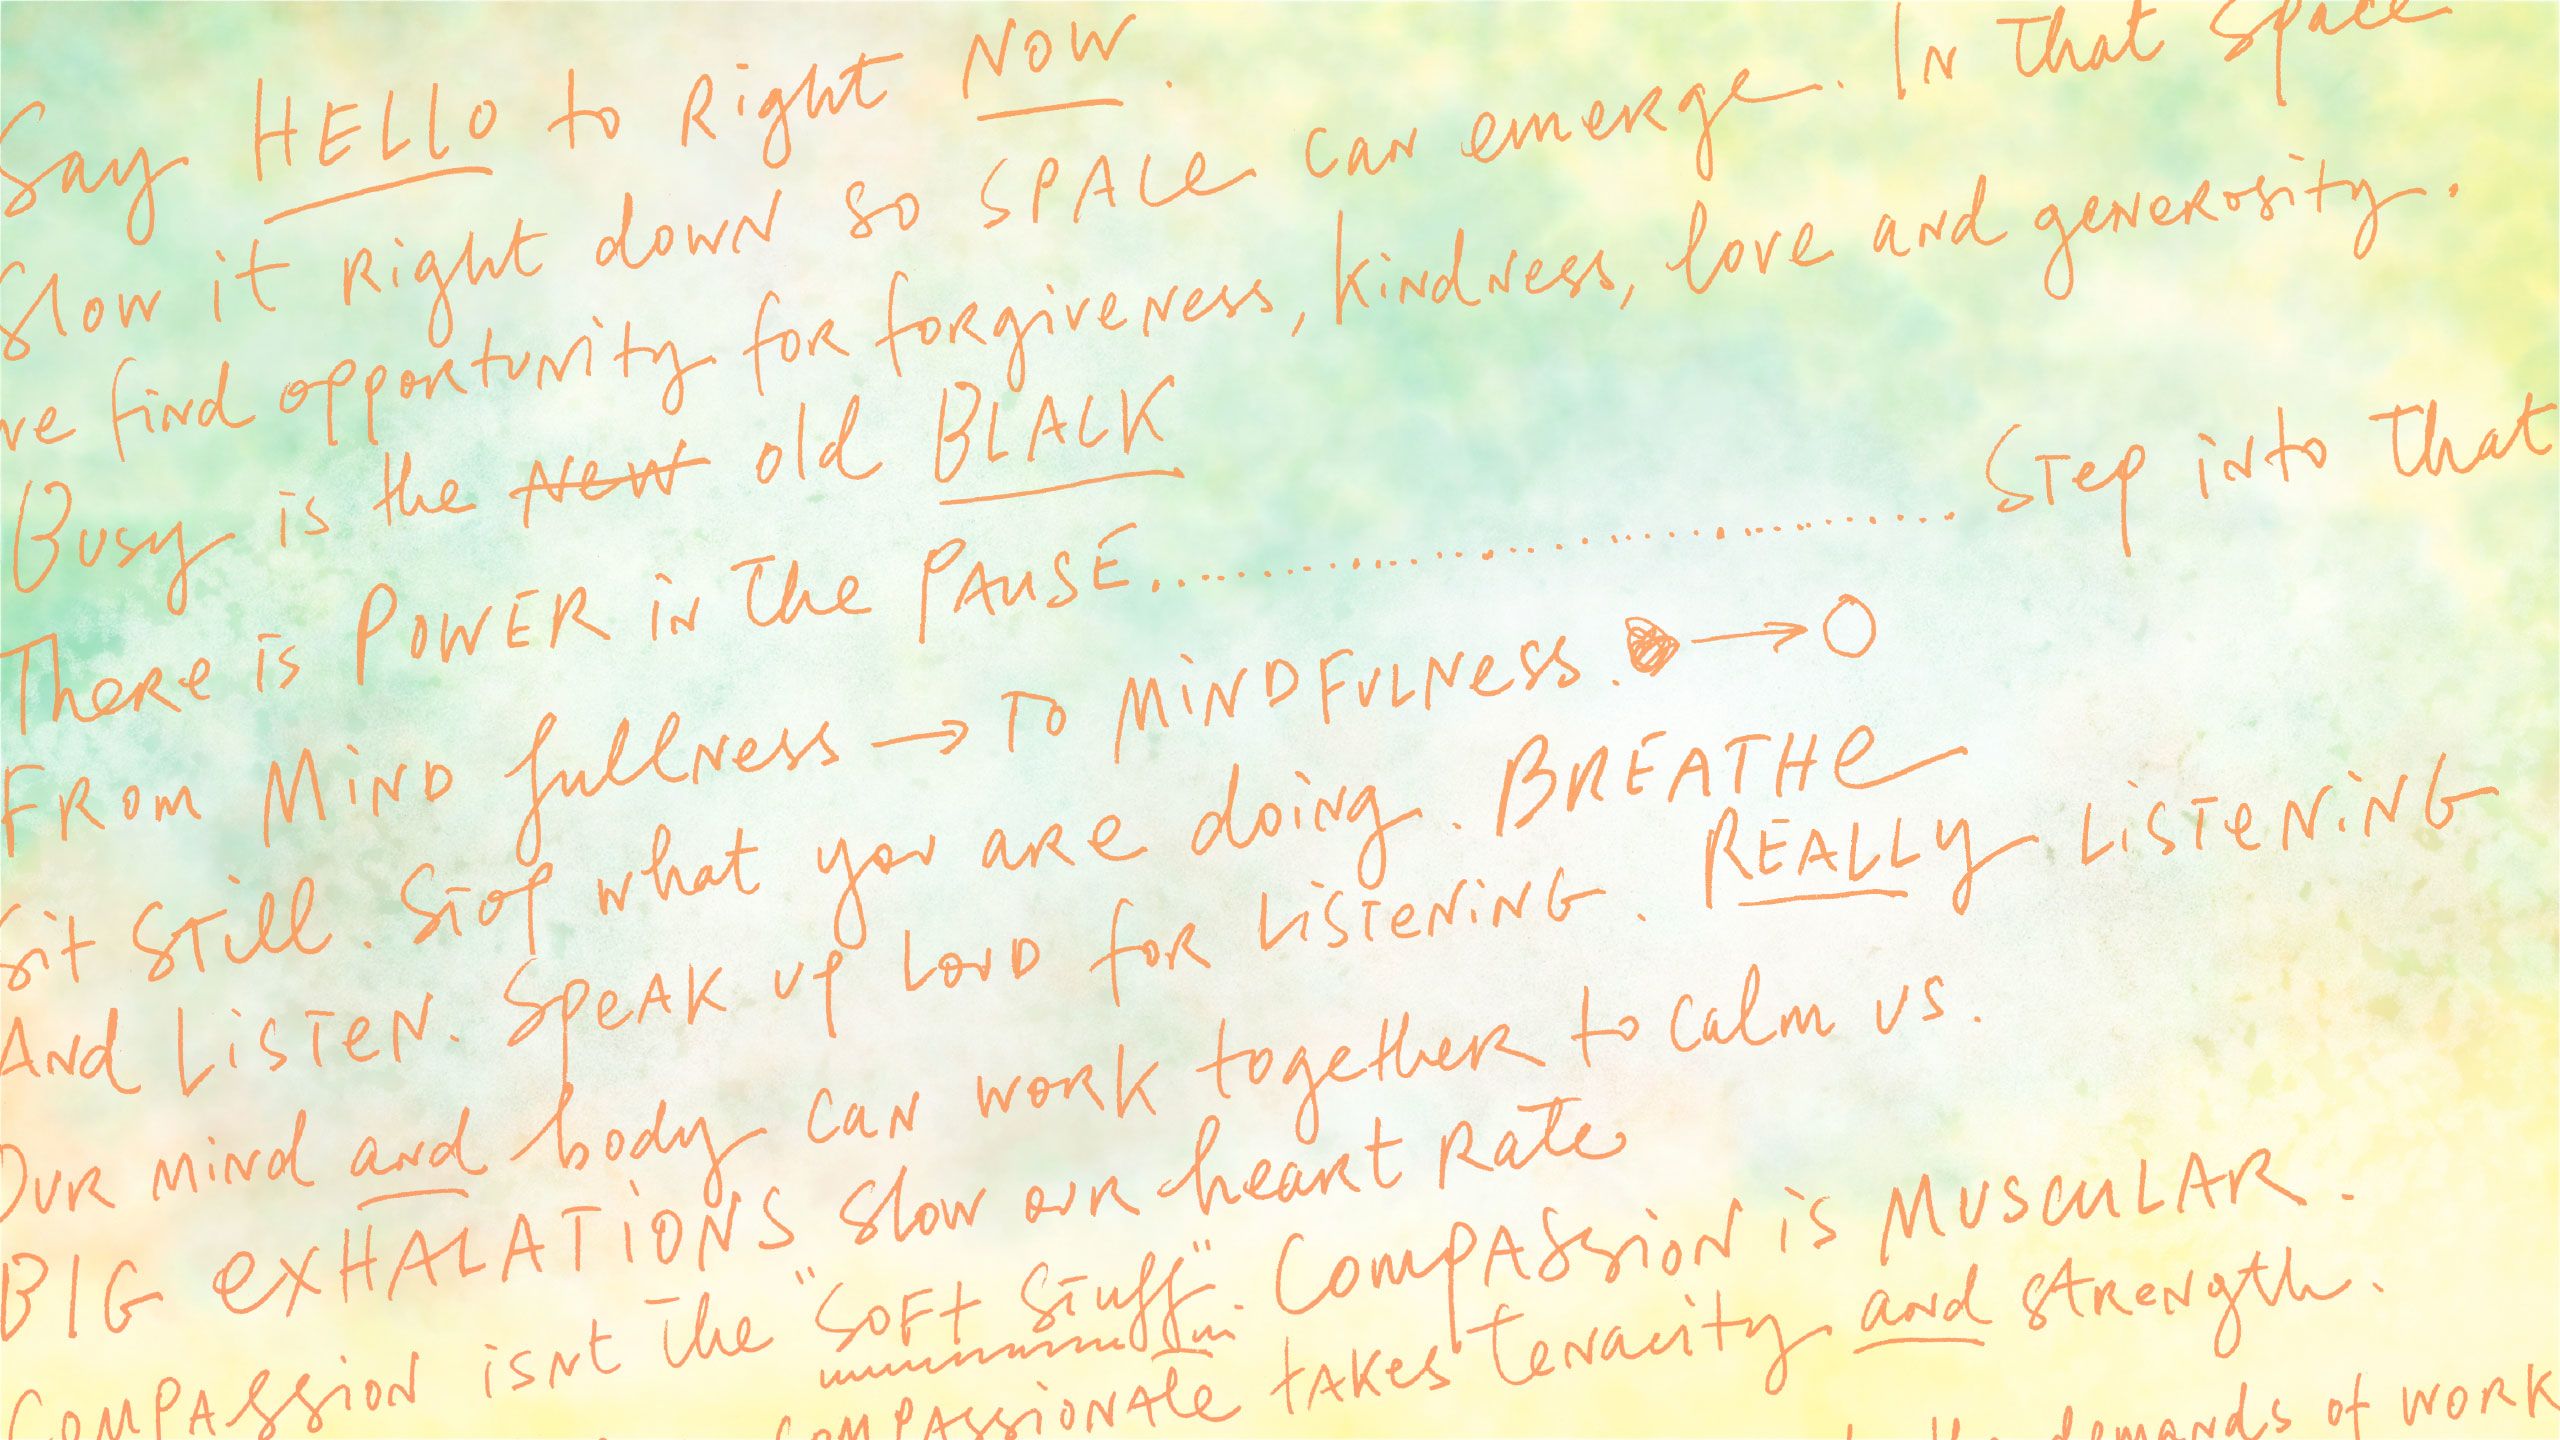 Say HELLO to Right NOW.
Slow it Right down so SPACe can emerge. In that space
we find opportunity for forgiveness, kindness, love and generosity.
Busy is the New old BLACK
There is POWER in the PAUSE........................ Step into that
From MIND fullness → To MINDFULNess. → 
Sit Still. Stop what you are doing. BREATHe
And Listen. Speak up LOUD for Listening. REALLY LISTENING
Our mind and body can work together to calm us.
BIG eXHALATIONS slow our heart Rate
COMPASsion isnt the "SOFt Stuff". COMPASsion is MUSCULAR.
COMPAssionate takes tenacity and strength.
the demands of WORK